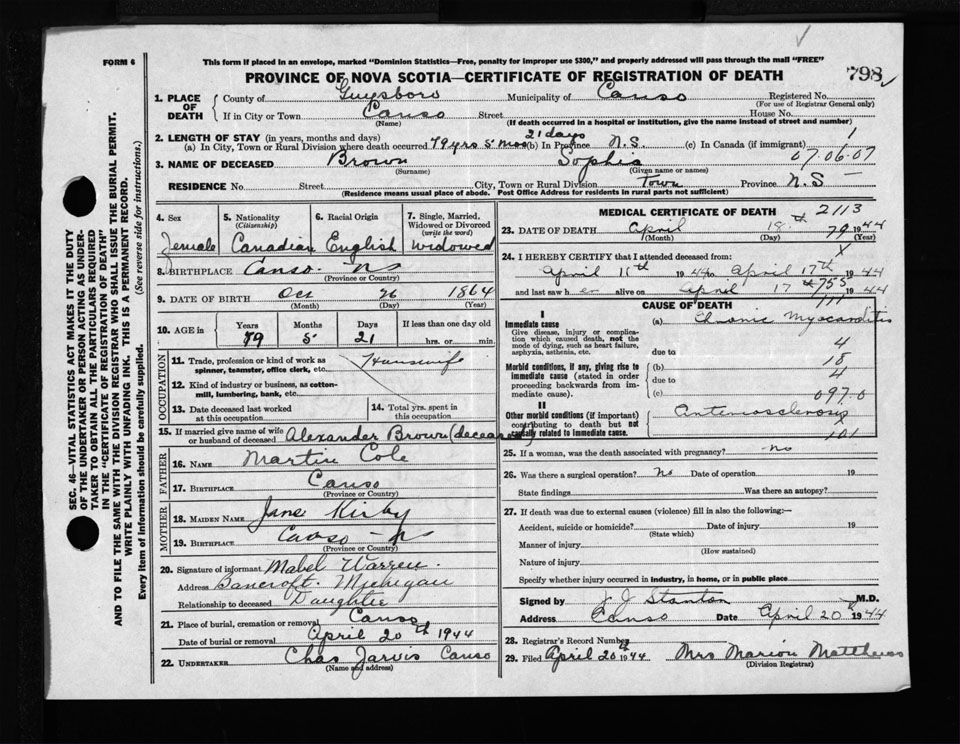 FORM 6
This form if placed in an envelope, marked "Dominion Statistics—Free, penalty for improper use $300," and properly addressed will pass through the mail "FREE"
PROVINCE OF NOVA SCOTIA—CERTIFICATE OF REGISTRATION OF DEATH
798
1. PLACE OF DEATH
County of Guysboro Municipality of Canso Registered No.
(For use of Registrar General only)
If in City or Town Canso Street House No.
(Name) (If death occurred in a hospital or institution, give the name instead of street and number)
2. LENGTH OF STAY (in years, months and days) 21 days
(a) In City, Town or Rural Division where death occurred 79 yrs 5 mos (b) In Province N.S. (c) In Canada (if immigrant) 1
07.06.07
3. NAME OF DECEASED Brown Sophia
(Surname) (Given name or names)
RESIDENCE No. Street City, Town or Rural Division Town Province N.S
(Residence means usual place of abode. Post Office Address for residents in rural parts not sufficient)
4. Sex
Female
5. Nationality
(Citizenship)
Canadian
6. Racial Origin
English
7. Single, Married, Widowed or Divorced
(write the word)
Widowed
8. BIRTHPLACE Canso. NS
(Province or Country)
9. DATE OF BIRTH Oct 26 1864
(Month) (Day) (Year)
10. AGE in
Years Months Days If less than one day old
79 5 21 hrs. or min.
OCCUPATION
11. Trade, profession or kind of work as spinner, teamster, office clerk, etc. Housewife
12. Kind of industry or business, as cotton-mill, lumbering, bank, etc.
13. Date deceased last worked at this occupation
14. Total yrs. spent in this occupation
15. If married give name of wife or husband of deceased Alexander Brown (deceased)
FATHER
16. NAME Martin Cole
17. BIRTHPLACE Canso
(Province or Country)
MOTHER
18. MAIDEN NAME Jane Kirby
19. BIRTHPLACE Canso
(Province or Country)
20. Signature of informant Mabel Warren.
Address Bancroft. Michigan
Relationship to deceased Daughter
21. Place of burial, cremation or removal Canso
Date of burial or removal April 20th 1944
22. UNDERTAKER Chas Jarvis Canso
(Name and address)
MEDICAL CERTIFICATE OF DEATH
2113
23. DATE OF DEATH April 18. 1944
79
(Month) (Day) (Year)
X
24. I HEREBY CERTIFY that I attended deceased from:
April 11th 1944 to April 17th 1944
755
and last saw her alive on April 17 1944
111
CAUSE OF DEATH
I
Immediate cause
Give disease, injury or complication which caused death, not the mode of dying, such as heart failure, asphyxia, asthenia, etc.
(a) Chronic Myocarditis
due to 4
Morbid conditions, if any, giving rise to immediate cause (stated in order proceeding backwards from immediate cause).
(b) 18
due to 4
(c) 097.0
II
Other morbid conditions (if important) contributing to death but not causally related to immediate cause.
Arteriosclerosis
X
101
25. If a woman, was the death associated with pregnancy? no
26. Was there a surgical operation? No Date of operation 19
State findings Was there an autopsy?
27. If death was due to external causes (violence) fill in also the following:—
Accident, suicide or homicide? Date of injury 19
(State which)
Manner of injury
(How sustained)
Nature of injury
Specify whether injury occurred in industry, in home, or in public place
Signed by J J Stanton M.D.
Address Canso Date April 20th 1944
28. Registrar's Record Number
29. Filed April 20th 1944 Mrs Marion Matthews
(Division Registrar)
SEC. 46—VITAL STATISTICS ACT MAKES IT THE DUTY
OF THE UNDERTAKER OR PERSON ACTING AS UNDER-
TAKER TO OBTAIN ALL THE PARTICULARS REQUIRED
IN THE "CERTIFICATE OF REGISTRATION OF DEATH"
AND TO FILE THE SAME WITH THE DIVISION REGISTRAR WHO SHALL ISSUE THE BURIAL PERMIT.
WRITE PLAINLY WITH UNFADING INK. THIS IS A PERMANENT RECORD.
Every item of information should be carefully supplied. (See reverse side for instructions.)